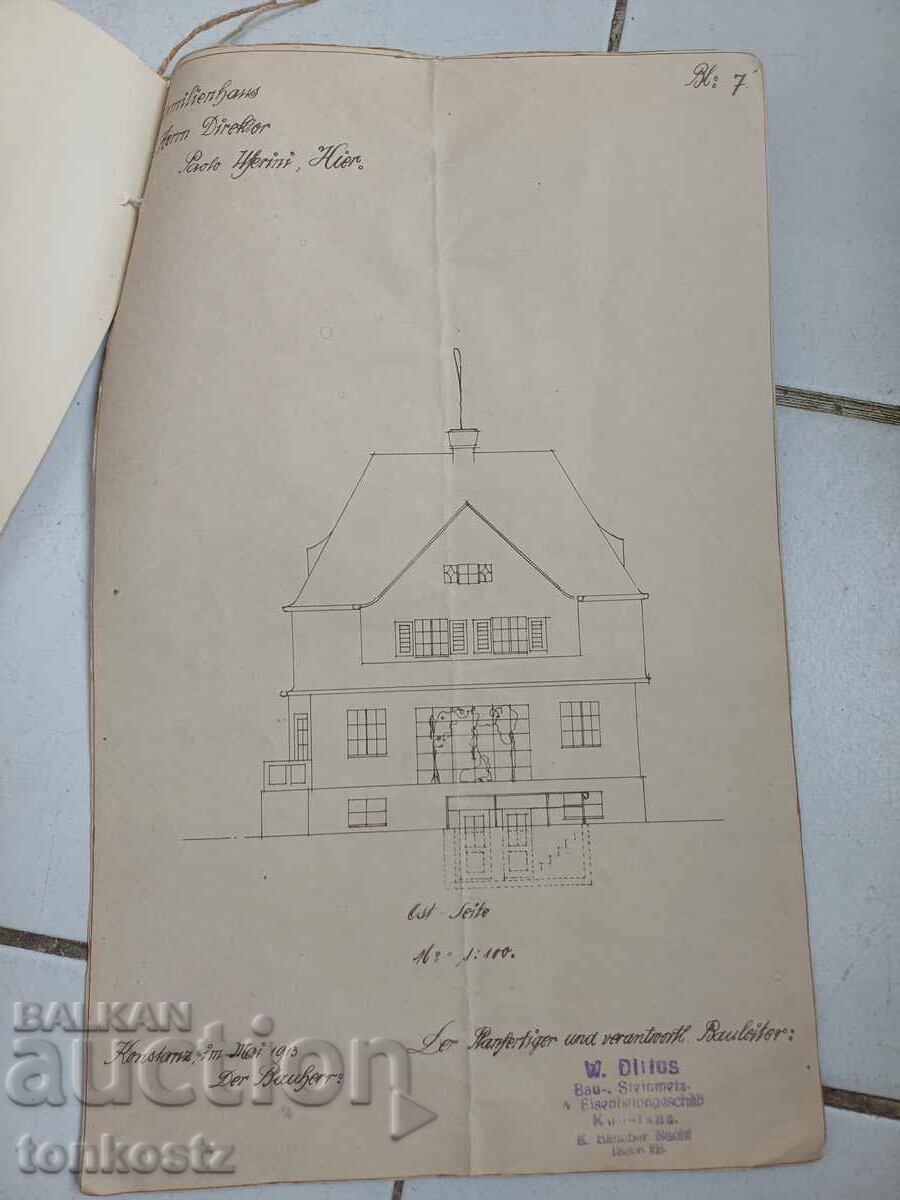 Bl: 7.
milienhaus
Herrn Direktor
Paolo Hier.
Ost-Seite
M: 1:100.
Konstanz, im Mai 1913
Der Bauherr:
Der Planfertiger und verantwortl. Bauleiter:
W. Dittus
Bau-, Steinmetz-
Eisenbetongeschäft
BALKAN
auction
tonkostz